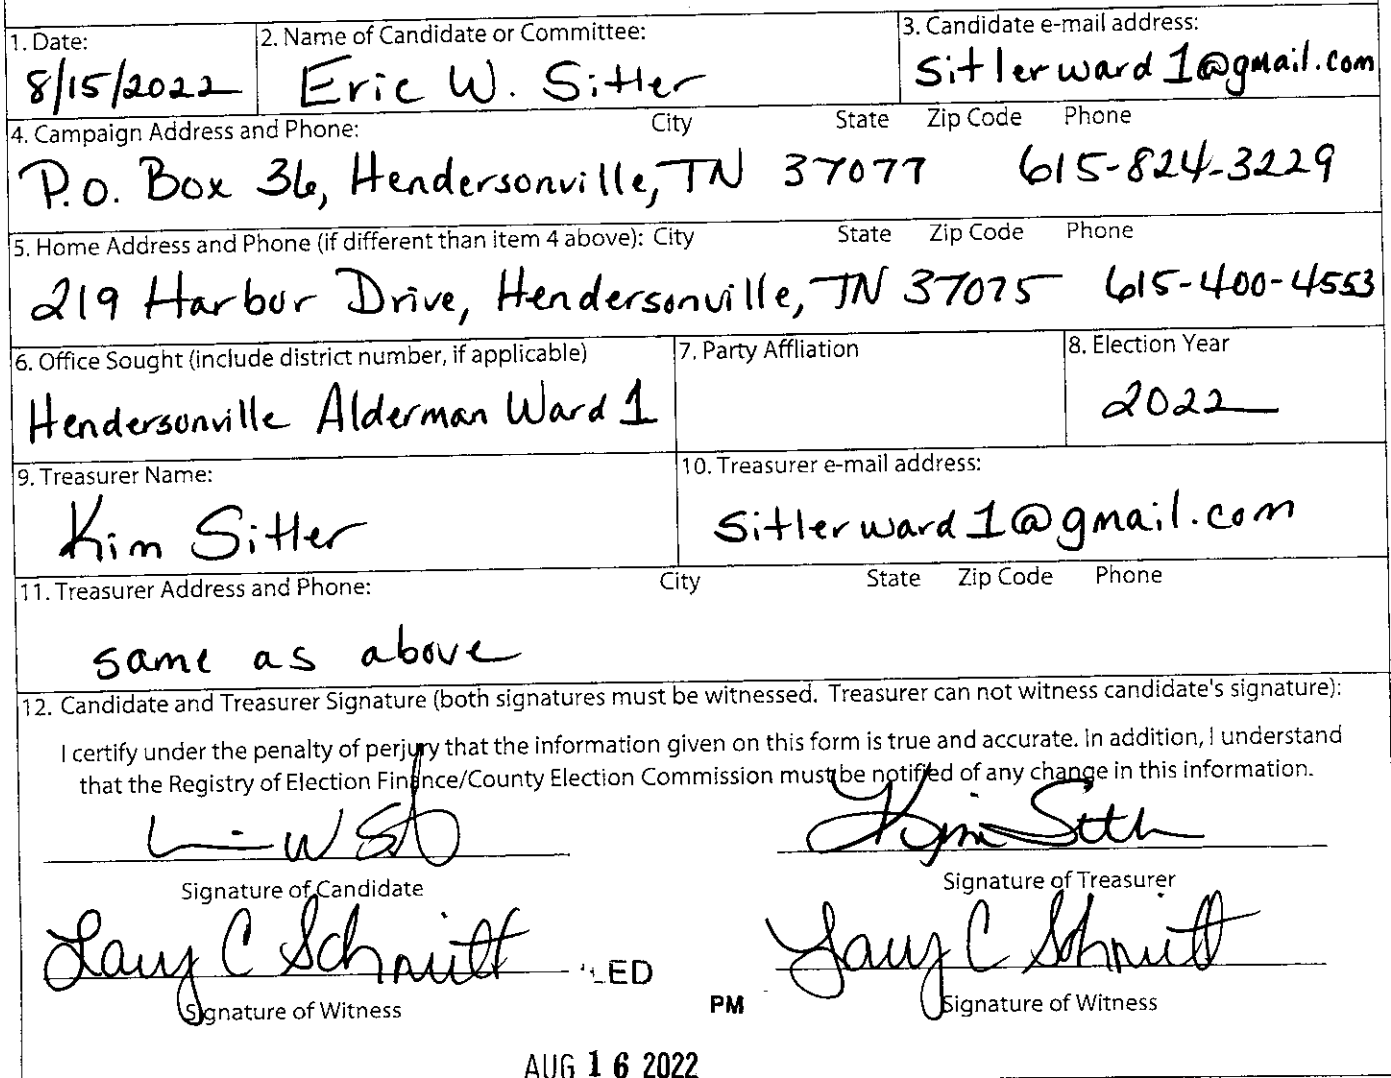 1. Date: 2. Name of Candidate or Committee: 3. Candidate e-mail address:
8/15/2022 Eric W. Sitler sitlerward1@gmail.com
4. Campaign Address and Phone: City State Zip Code Phone
P.O. Box 36, Hendersonville, TN 37077 615-824-3229
5. Home Address and Phone (if different than item 4 above): City State Zip Code Phone
219 Harbor Drive, Hendersonville, TN 37075 615-400-4553
6. Office Sought (include district number, if applicable) 7. Party Affliation 8. Election Year
Hendersonville Alderman Ward 1 2022
9. Treasurer Name: 10. Treasurer e-mail address:
Kim Sitler sitlerward1@gmail.com
11. Treasurer Address and Phone: City State Zip Code Phone
same as above
12. Candidate and Treasurer Signature (both signatures must be witnessed. Treasurer can not witness candidate's signature):
I certify under the penalty of perjury that the information given on this form is true and accurate. In addition, I understand
that the Registry of Election Finance/County Election Commission must be notified of any change in this information.
Kim Sitler
Signature of Candidate Signature of Treasurer
C Schmitt C Schmitt
LED
Signature of Witness PM Signature of Witness
AUG 16 2022